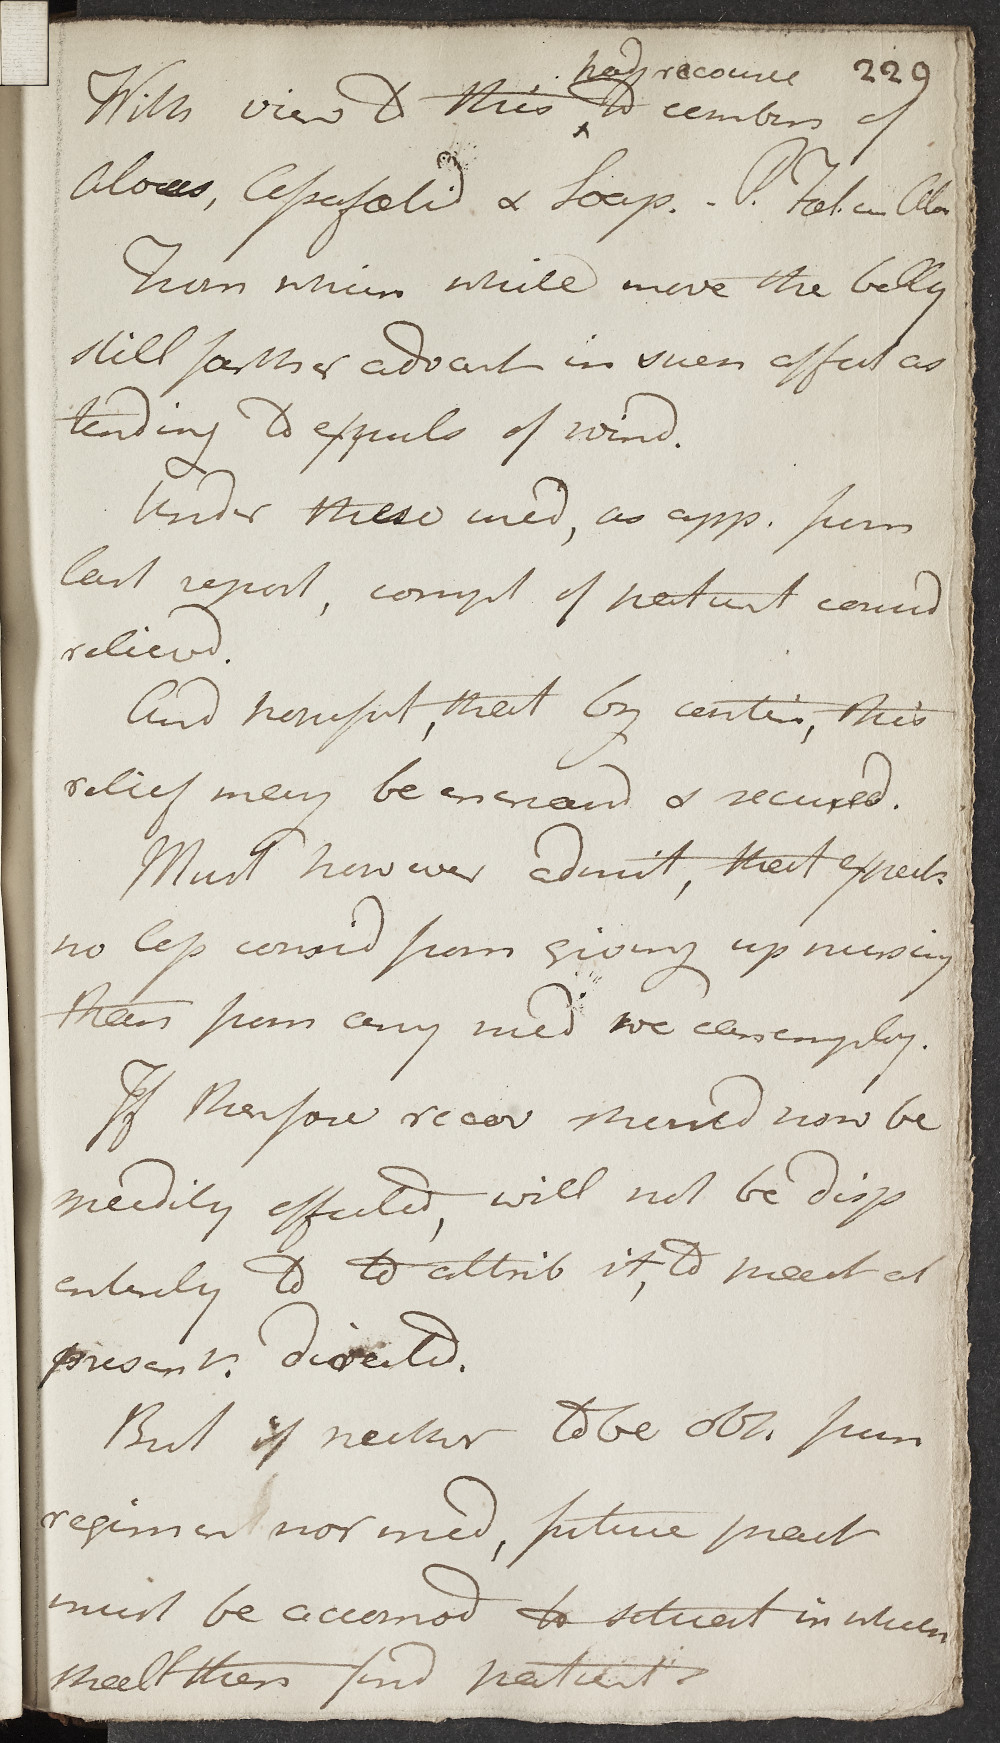 229
had recourse
With view to this to combin of
Aloes, Assafoetid & Soap. - P. Foet. cu Alo
From which while move the belly
still farther advant in such effect as
tending to expuls of wind.
Under these med, as app. from
last report, compl of patient consid
relievd.
And hopeful, that by contin, this
relief may be encreasd & secured.
Must however admit, that expect
no less consid from giving up nursing
than from any med we can employ.
If therefore recov should now be
speedily effected, will not be disp
entirely to to attrib it, to pract at
present. directed.
But if neither to be obt. from
regimen nor med, future pract
must be accomod to situat in which
shall then find patient